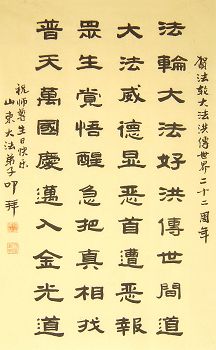 賀法輪大法洪傳世界二十二周年
法輪大法好洪傳世間道
大法威德显恶首遭恶報
眾生覚悟醒急把真相找
普天萬國慶邁入金光道
祝师尊生日快乐
山東大法弟子叩拜